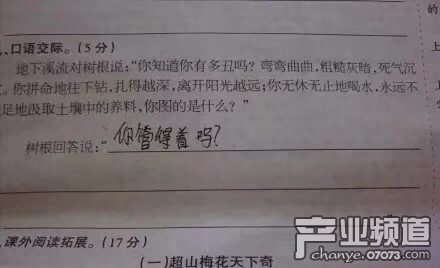 、口语交际。(5分)
地下溪流对树根说:“你知道你有多丑吗?弯弯曲曲,粗糙灰暗,死气沉
。你拼命地往下钻,扎得越深,离开阳光越远;你无休无止地喝水,永远不
足地汲取土壤中的养料,你图的是什么?”
树根回答说:“你管得着吗?
、课外阅读拓展。(17分)
(一)超山梅花天下奇
产业频道
chanye.07073.com
的
上